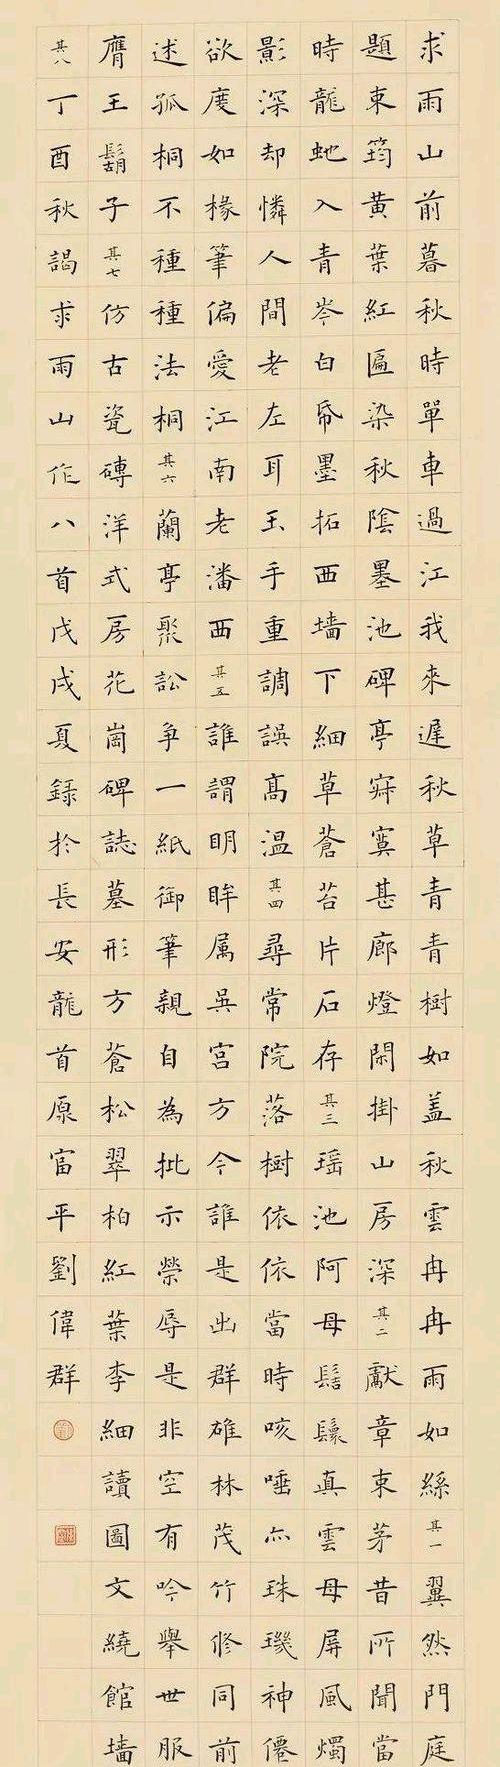 求雨山前暮秋時單車過江我來遲秋草青青樹如盖秋雲冉冉雨如絲其一翼然門庭
題東筠黄葉紅匾染秋陰墨池碑亭寂寞甚廊燈閑掛山房深其二獻章束茅昔所聞當
時龍虵入青岑白帋墨拓西墻下細草蒼苔片石存其三瑶池阿母髻鬟真雲母屏風燭
影深却憐人間老左耳玉手重調誤高温其四尋常院落樹依依當時咳唾亦珠璣神僊
欲度如椽筆偏愛江南老潘西其五誰謂明眸属吳宫方今誰是出群雄林茂竹修同前
述孤桐不種種法桐其六蘭亭聚訟争一紙御筆親自為批示榮辱是非空有吟舉世服
膺王鬍子其七仿古瓷磚洋式房花崗碑誌墓形方蒼松翠柏紅葉李細讀圖文繞館墻
其八丁酉秋謁求雨山作八首戊戌夏録於長安龍首原富平劉偉群